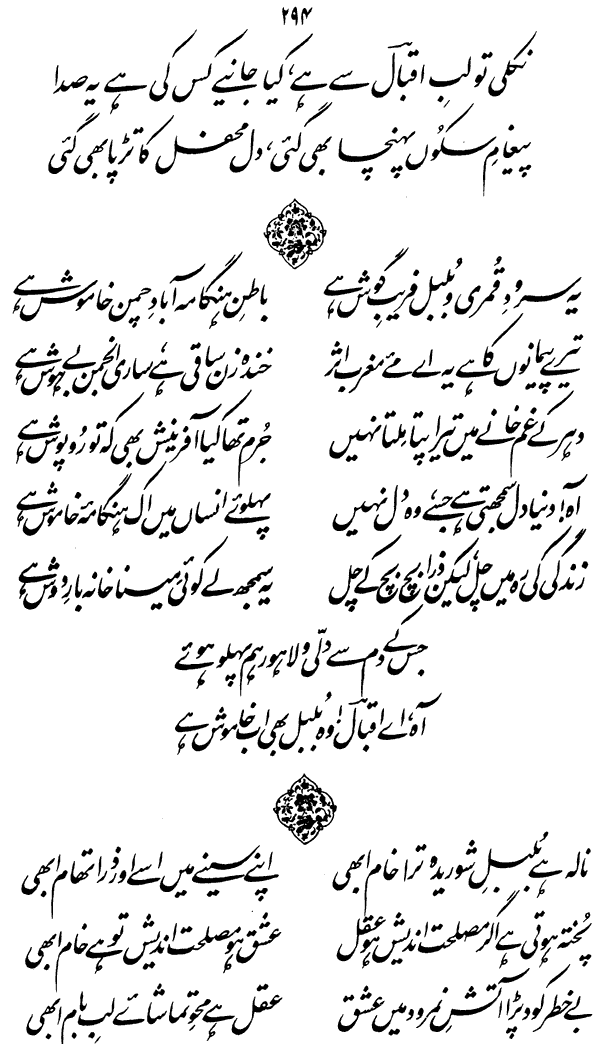 ۲۹۴
نکلی تو لبِ اقبالؔ سے ہے، کیا جانیے کس کی ہے یہ صدا
پیغامِ سکُوں پہنچا بھی گئی، دل محفل کا تڑپا بھی گئی
یہ سرودِ قُمری و بُلبل فریبِ گوش ہے باطنِ ہنگامہ آبادِ چمن خاموش ہے
تیرے پیمانوں کا ہے یہ اے مئے مغرب اثر خندہ زن ساقی ہے، ساری انجمن بے ہوش ہے
دہر کے غم خانے میں تیرا پتا مِلتا نہیں جُرم تھا کیا آفرینش بھی کہ تو رُوپوش ہے
آہ! دنیا دل سمجھتی ہے جسے، وہ دل نہیں پہلوئے انساں میں اک ہنگامۂ خاموش ہے
زندگی کی رہ میں چل، لیکن ذرا بچ بچ کے چل یہ سمجھ لے کوئی مِینا خانہ بارِ دوش ہے
جس کے دم سے دلّی و لاہور ہم پہلو ہوئے
آہ، اے اقبالؔ! وہ بُلبل بھی اب خاموش ہے
نالہ ہے بُلبلِ شوریدہ ترا خام ابھی اپنے سینے میں اسے اور ذرا تھام ابھی
پُختہ ہوتی ہے اگر مصلحت اندیش ہو عقل عشق ہو مصلحت اندیش تو ہے خام ابھی
بے خطر کود پڑا آتشِ نمرود میں عشق عقل ہے محوِ تماشائے لبِ بام ابھی